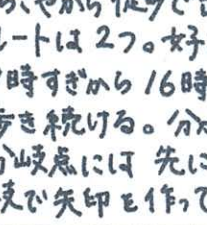 ルートは2つ。女子
時すぎから16時
歩き続ける。分
分岐点には先に
枝で矢印を作って